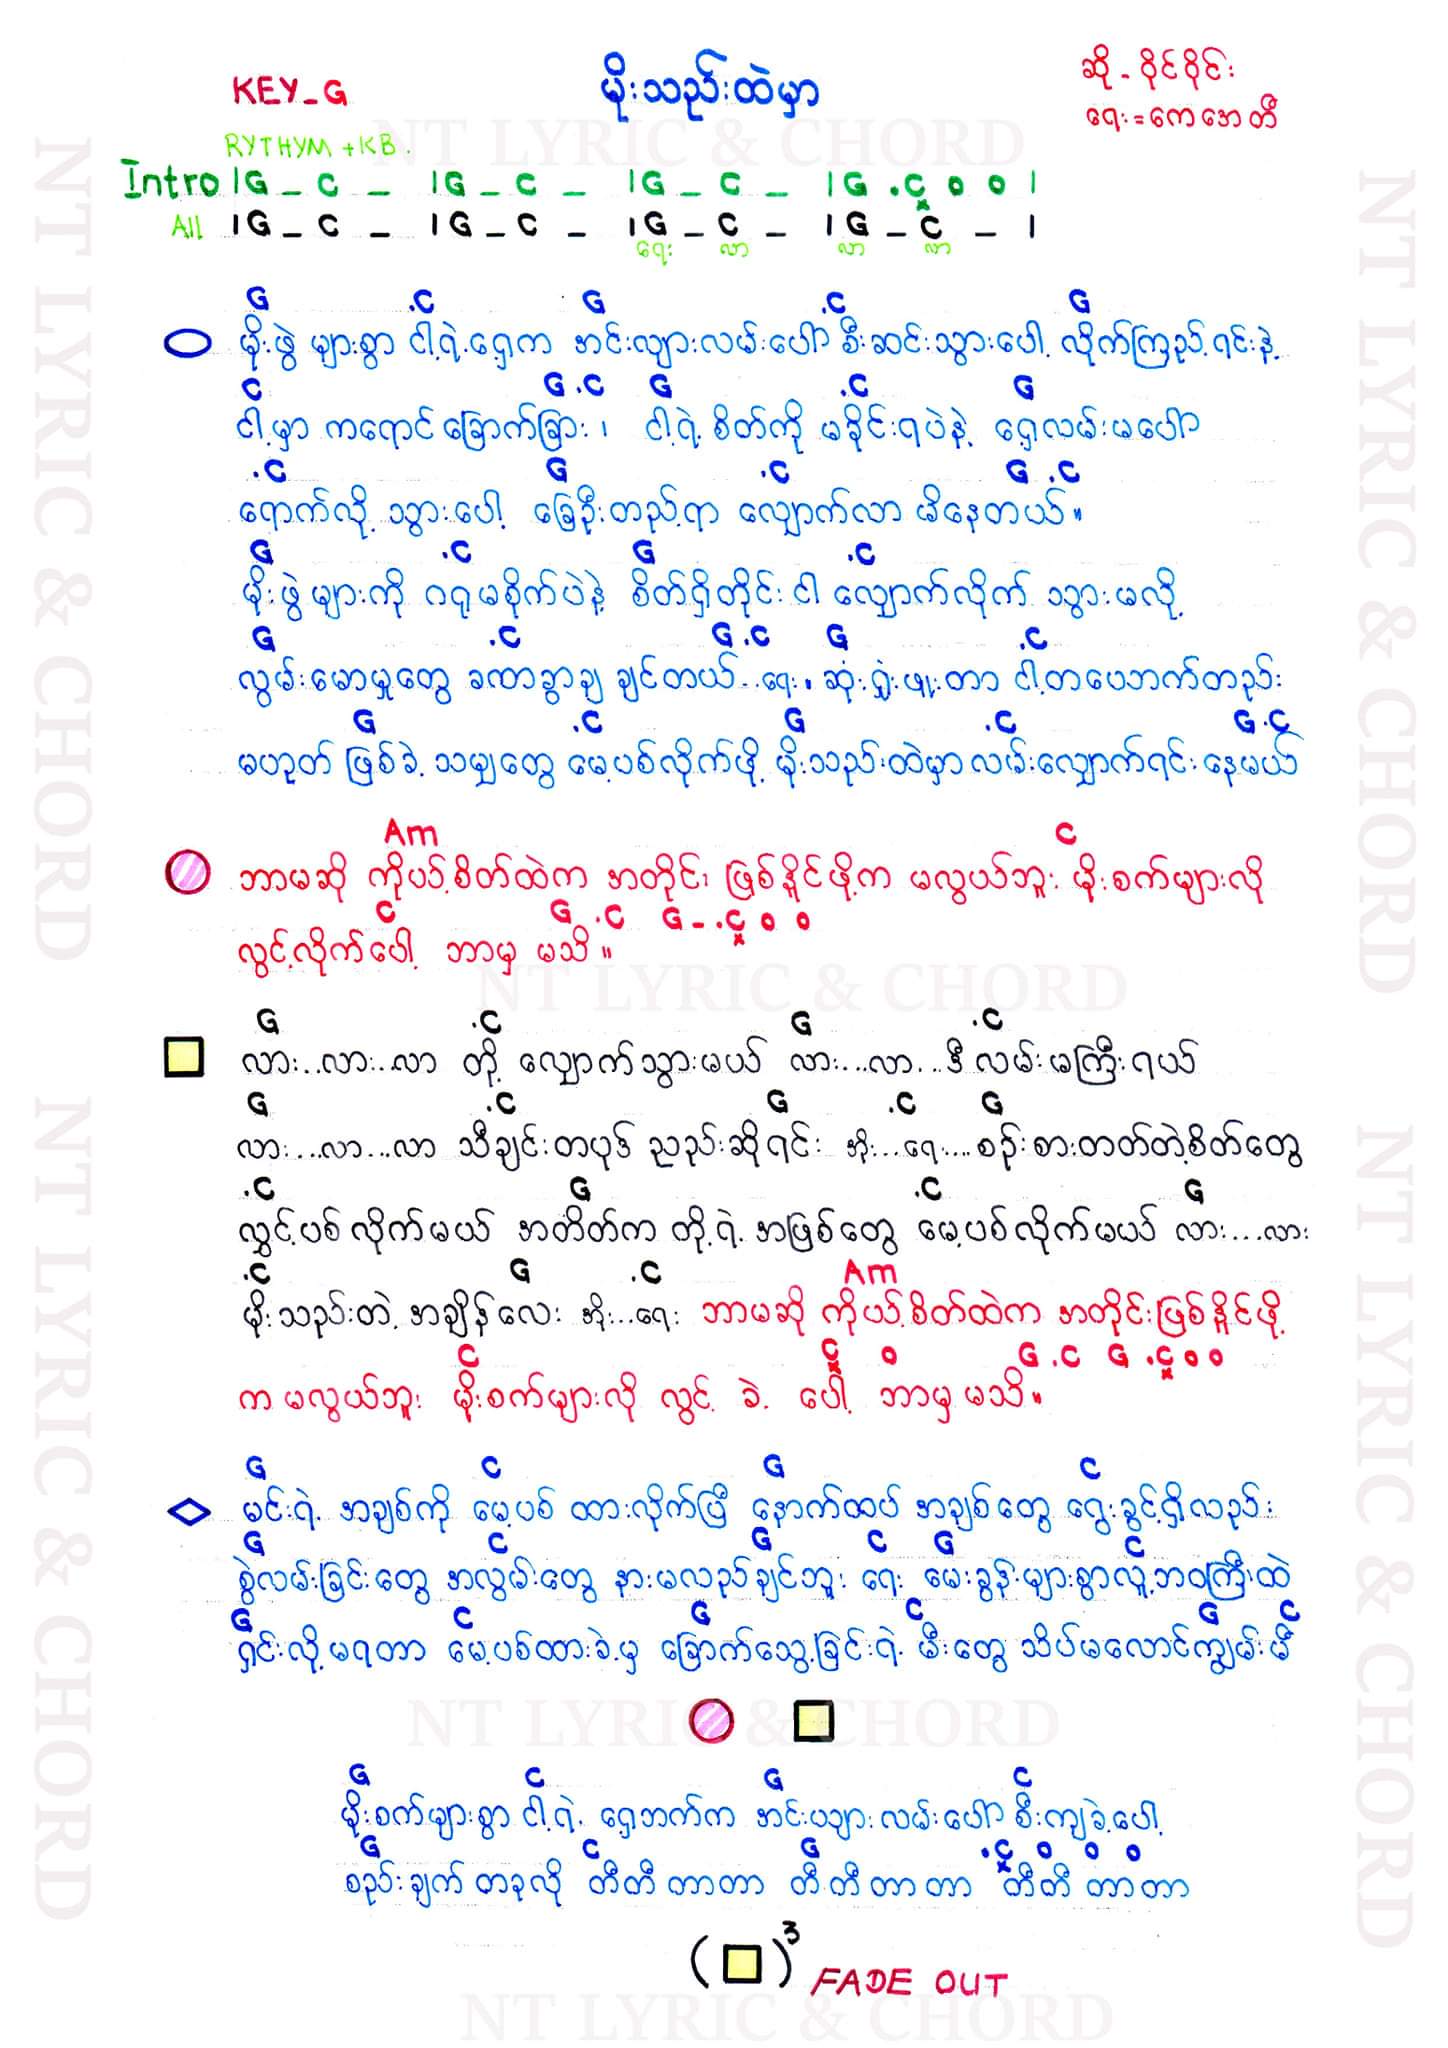 KEY_G
မိုးသည်းထဲမှာ
ဆို - ဝိုင်ဝိုင်း
ရေး = ကေအေတီ
RYTHYM + KB.
Intro | G _ C _ | G _ C _ | G _ C _ | G . C o o |
All | G _ C _ | G _ C _ | G _ C _ | G _ C _ |
ရေး လာ လာ လာ
G .C G .C G
မိုးဖွဲ များစွာ ငါ့ရဲ့ရှေ့က အင်းလျားလမ်းပေါ် စီးဆင်းသွားပေါ့ လိုက်ကြည့်ရင်းနဲ့
C G .C G .C G
ငါ့မှာ ကရောင်ခြောက်ခြား ၊ ငါ့ရဲ့ စိတ်ကို မခိုင်းရပဲနဲ့ ရှေ့လမ်းမပေါ်
.C G .C G .C
ရောက်လို့ သွားပေါ့ ခြေဦးတည့်ရာ လျှောက်လာ မိနေတယ်။
G .C G .C
မိုးဖွဲများကို ဂရုမစိုက်ပဲနဲ့ စိတ်ရှိတိုင်း ငါ လျှောက်လိုက် သွားမလို့
G .C G .C G .C
လွမ်းမောမှုတွေ ခဏခွာချ ချင်တယ်..ရေး ဆုံးရှုံးဖူးတာ ငါ့တယောက်တည်း
G .C G .C G .C
မဟုတ် ဖြစ်ခဲ့ သမျှတွေ မေ့ပစ်လိုက်ဖို့ မိုးသည်းထဲမှာ လမ်းလျှောက်ရင်း နေမယ်
Am C
ဘာမဆို ကိုယ့်စိတ်ထဲက အတိုင်း၊ ဖြစ်နိုင်ဖို့က မလွယ်ဘူး မိုးစက်များလို
C G .C G _ .C o o
လွင့်လိုက်ပေါ့ ဘာမှ မသိ။
G .C G .C
လား..လား..လာ တို့ လျှောက်သွားမယ် လား...လာ...ဒီ လမ်းမကြီးရယ်
G .C G .C G
လား...လာ...လာ သီချင်းတပုဒ် ညည်းဆိုရင်း အိုး...ရေး.... စဉ်းစားတတ်တဲ့စိတ်တွေ
.C G .C G
လွှင့်ပစ်လိုက်မယ် အတိတ်က တို့ရဲ့ အဖြစ်တွေ မေ့ပစ်လိုက်မယ် လား...လား
.C G .C Am
မိုးသည်းတဲ့ အချိန်လေး အိုး...ရေး ဘာမဆို ကိုယ့်စိတ်ထဲက အတိုင်းဖြစ်နိုင်ဖို့
C C o G .C G .C o o
က မလွယ်ဘူး မိုးစက်များလို လွင့် ခဲ့ ပေါ့ ဘာမှ မသိ။
G C G C
မင်းရဲ့ အချစ်ကို မေ့ပစ် ထားလိုက်ပြီ နောက်ထပ် အချစ်တွေ ရွေးခွင့်ရှိလည်း
G C G C G C
စွဲလမ်းခြင်းတွေ အလွမ်းတွေ နားမလည်ချင်ဘူး ရေး မေးခွန်းများစွာလူ့ဘဝကြီးထဲ
G C G C G C
ရှင်းလို့မရတာ မေ့ပစ်ထားခဲ့မှ ခြောက်သွေ့ခြင်းရဲ့ မီးတွေ သိပ်မလောင်ကျွမ်းမီ
G C G C
မိုးစက်များစွာ ငါ့ရဲ့ ရှေ့ဘက်က အင်းယျားလမ်းပေါ် စီးကျခဲ့ပေါ့
G C G .C o o o
စည်းချက် တခုလို တီတီ တာတာ တီတီ တာတာ တီတီ တာတာ
( )3 FADE OUT
NT LYRIC & CHORD
NT LYRIC & CHORD
NT LYRIC & CHORD
NT LYRIC & CHORD
NT LYRIC & CHORD
NT LYRIC & CHORD
NT LYRIC & CHORD
NT LYRIC & CHORD